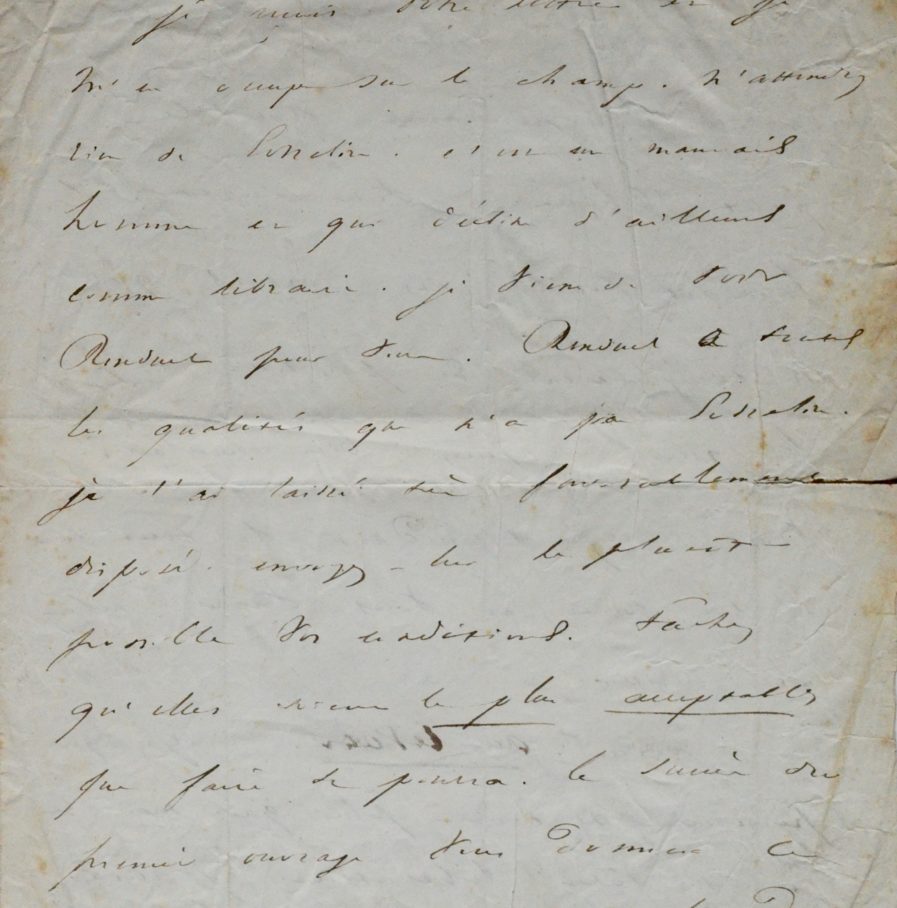 je reçois votre lettre et je
m'en occupe sur le champ. N'attendez
rien de Gosselin. c'est un mauvais
homme et qui décline d'ailleurs
comme libraire. je viens de voir
Renduel pour vous. Renduel a toutes
les qualités que n'a pas Gosselin.
je l'ai laissé très favorablement
disposé. envoyez-lui le plutôt
possible vos conditions. Tâchez
qu'elles soient le plus acceptables
que faire se pourra. le succès du
premier ouvrage vous donnera